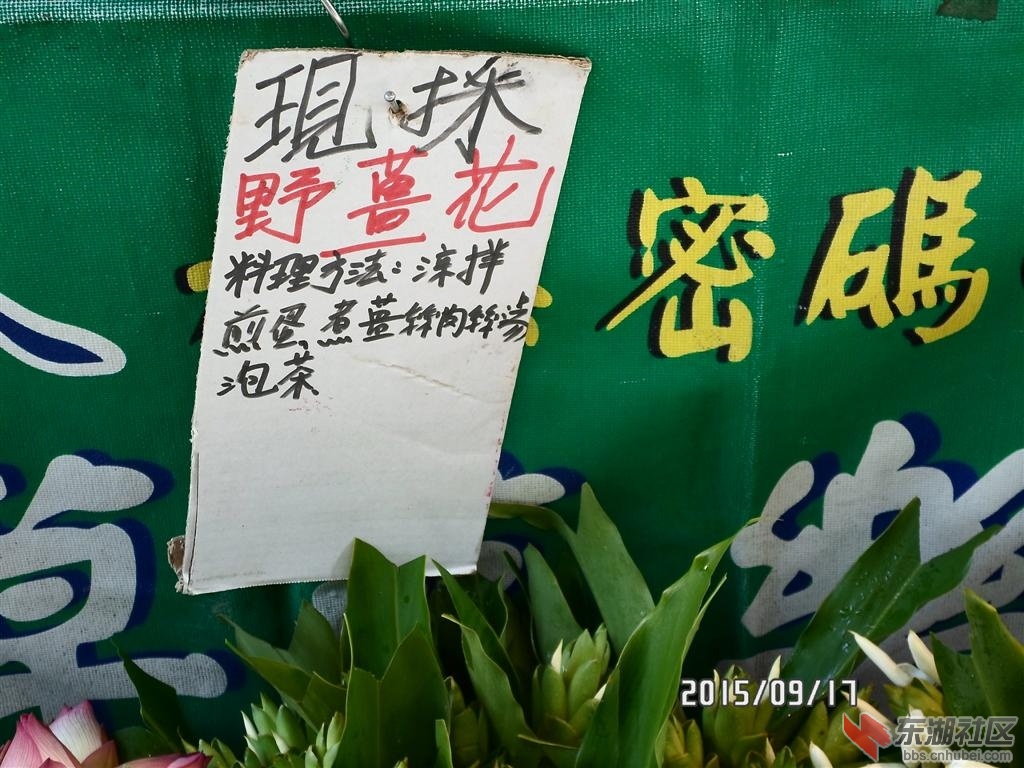 現採
野薑花
料理方法：涼拌
煎蛋、煮薑絲肉絲湯
泡茶
密碼
2015/09/17
东湖社区
bbs.cnhubei.com